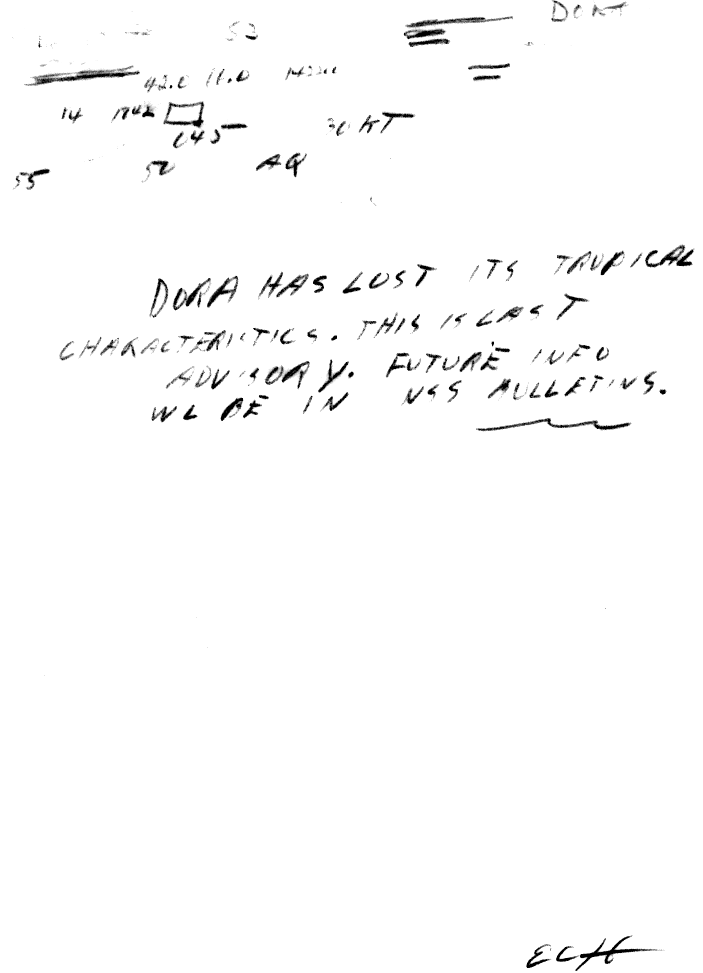 52 DORA
42.0
14 1742
045 30 KT
55 50 AQ
DORA HAS LOST ITS TROPICAL
CHARACTERISTICS. THIS IS LAST
ADVISORY. FUTURE INFO
WL BE IN NSS BULLETINS.
ECH